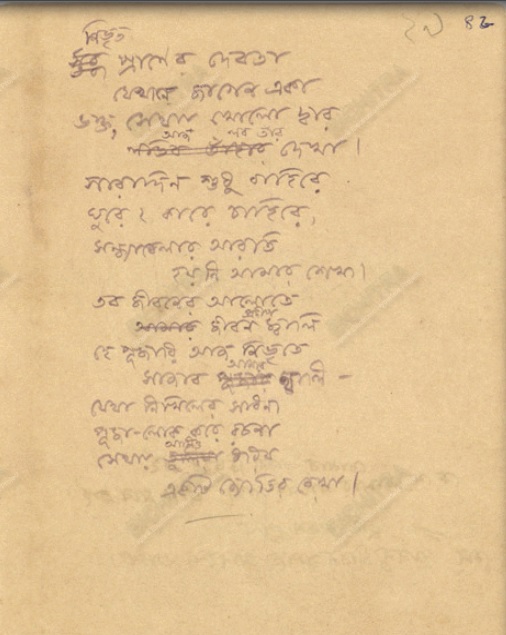 ২৯ 82
নিভৃত
প্রাণের দেবতা
যেখানে জাগেন একা
ভক্ত, সেথায় খোলো দ্বার
আজ লব তাঁর
দেখা।
সারাদিন শুধু বাহিরে
ঘুরে ২ কারে চাহিরে,
সন্ধ্যাবেলার আরতি
হয়নি আমার শেখা।
তব জীবনের আলোতে
প্রদীপ
জীবন জ্বালি
হে পূজারি আজ নিভৃতে
আমার
সাজাব থালী –
যেথা নিখিলের সাধনা
পূজা-লোক করে রচনা
সেথায়
একটি জ্যোতির রেখা।